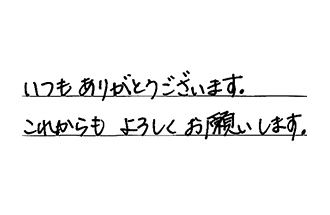 いつもありがとうございます.
これからも よろしく お願いします.